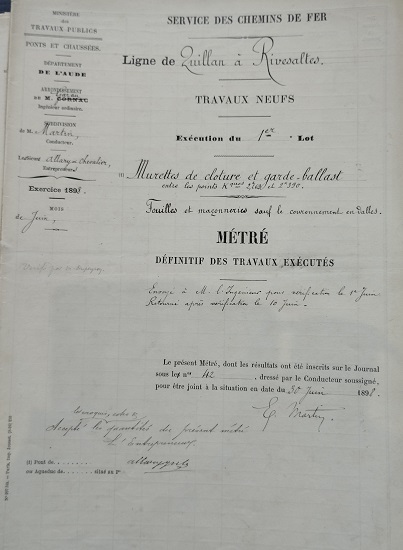 MINISTÈRE
des
TRAVAUX PUBLICS
PONTS ET CHAUSSÉES
DÉPARTEMENT
DE L'AUDE
ARRONDISSEMENT
DE M.
Ingénieur ordinaire.
SUBDIVISION
de M. Martin,
Conducteur.
Allary et Chevalier,
Entrepreneurs
Exercice 1898.
MOIS
de Juin.
SERVICE DES CHEMINS DE FER
Ligne de Quillan à Rivesaltes.
TRAVAUX NEUFS
Exécution du 1er Lot
(1) Murettes de cloture et garde-ballast
entre les points K et 2.390.
Fouilles et maçonneries sauf le couronnement en dalles.
MÉTRÉ
DÉFINITIF DES TRAVAUX EXÉCUTÉS
Envoyé à M. l'Ingénieur pour vérification le 1er Juin
Retourné après vérification le 10 Juin.
Le présent Métré, dont les résultats ont été inscrits sur le Journal
sous les nos 42, dressé par le Conducteur soussigné,
pour être joint à la situation en date du 30 Juin 1898.
E. Martin
les quantités du présent métré
L'Entrepreneur
(1) Pont de
ou Aqueduc de Situé au P